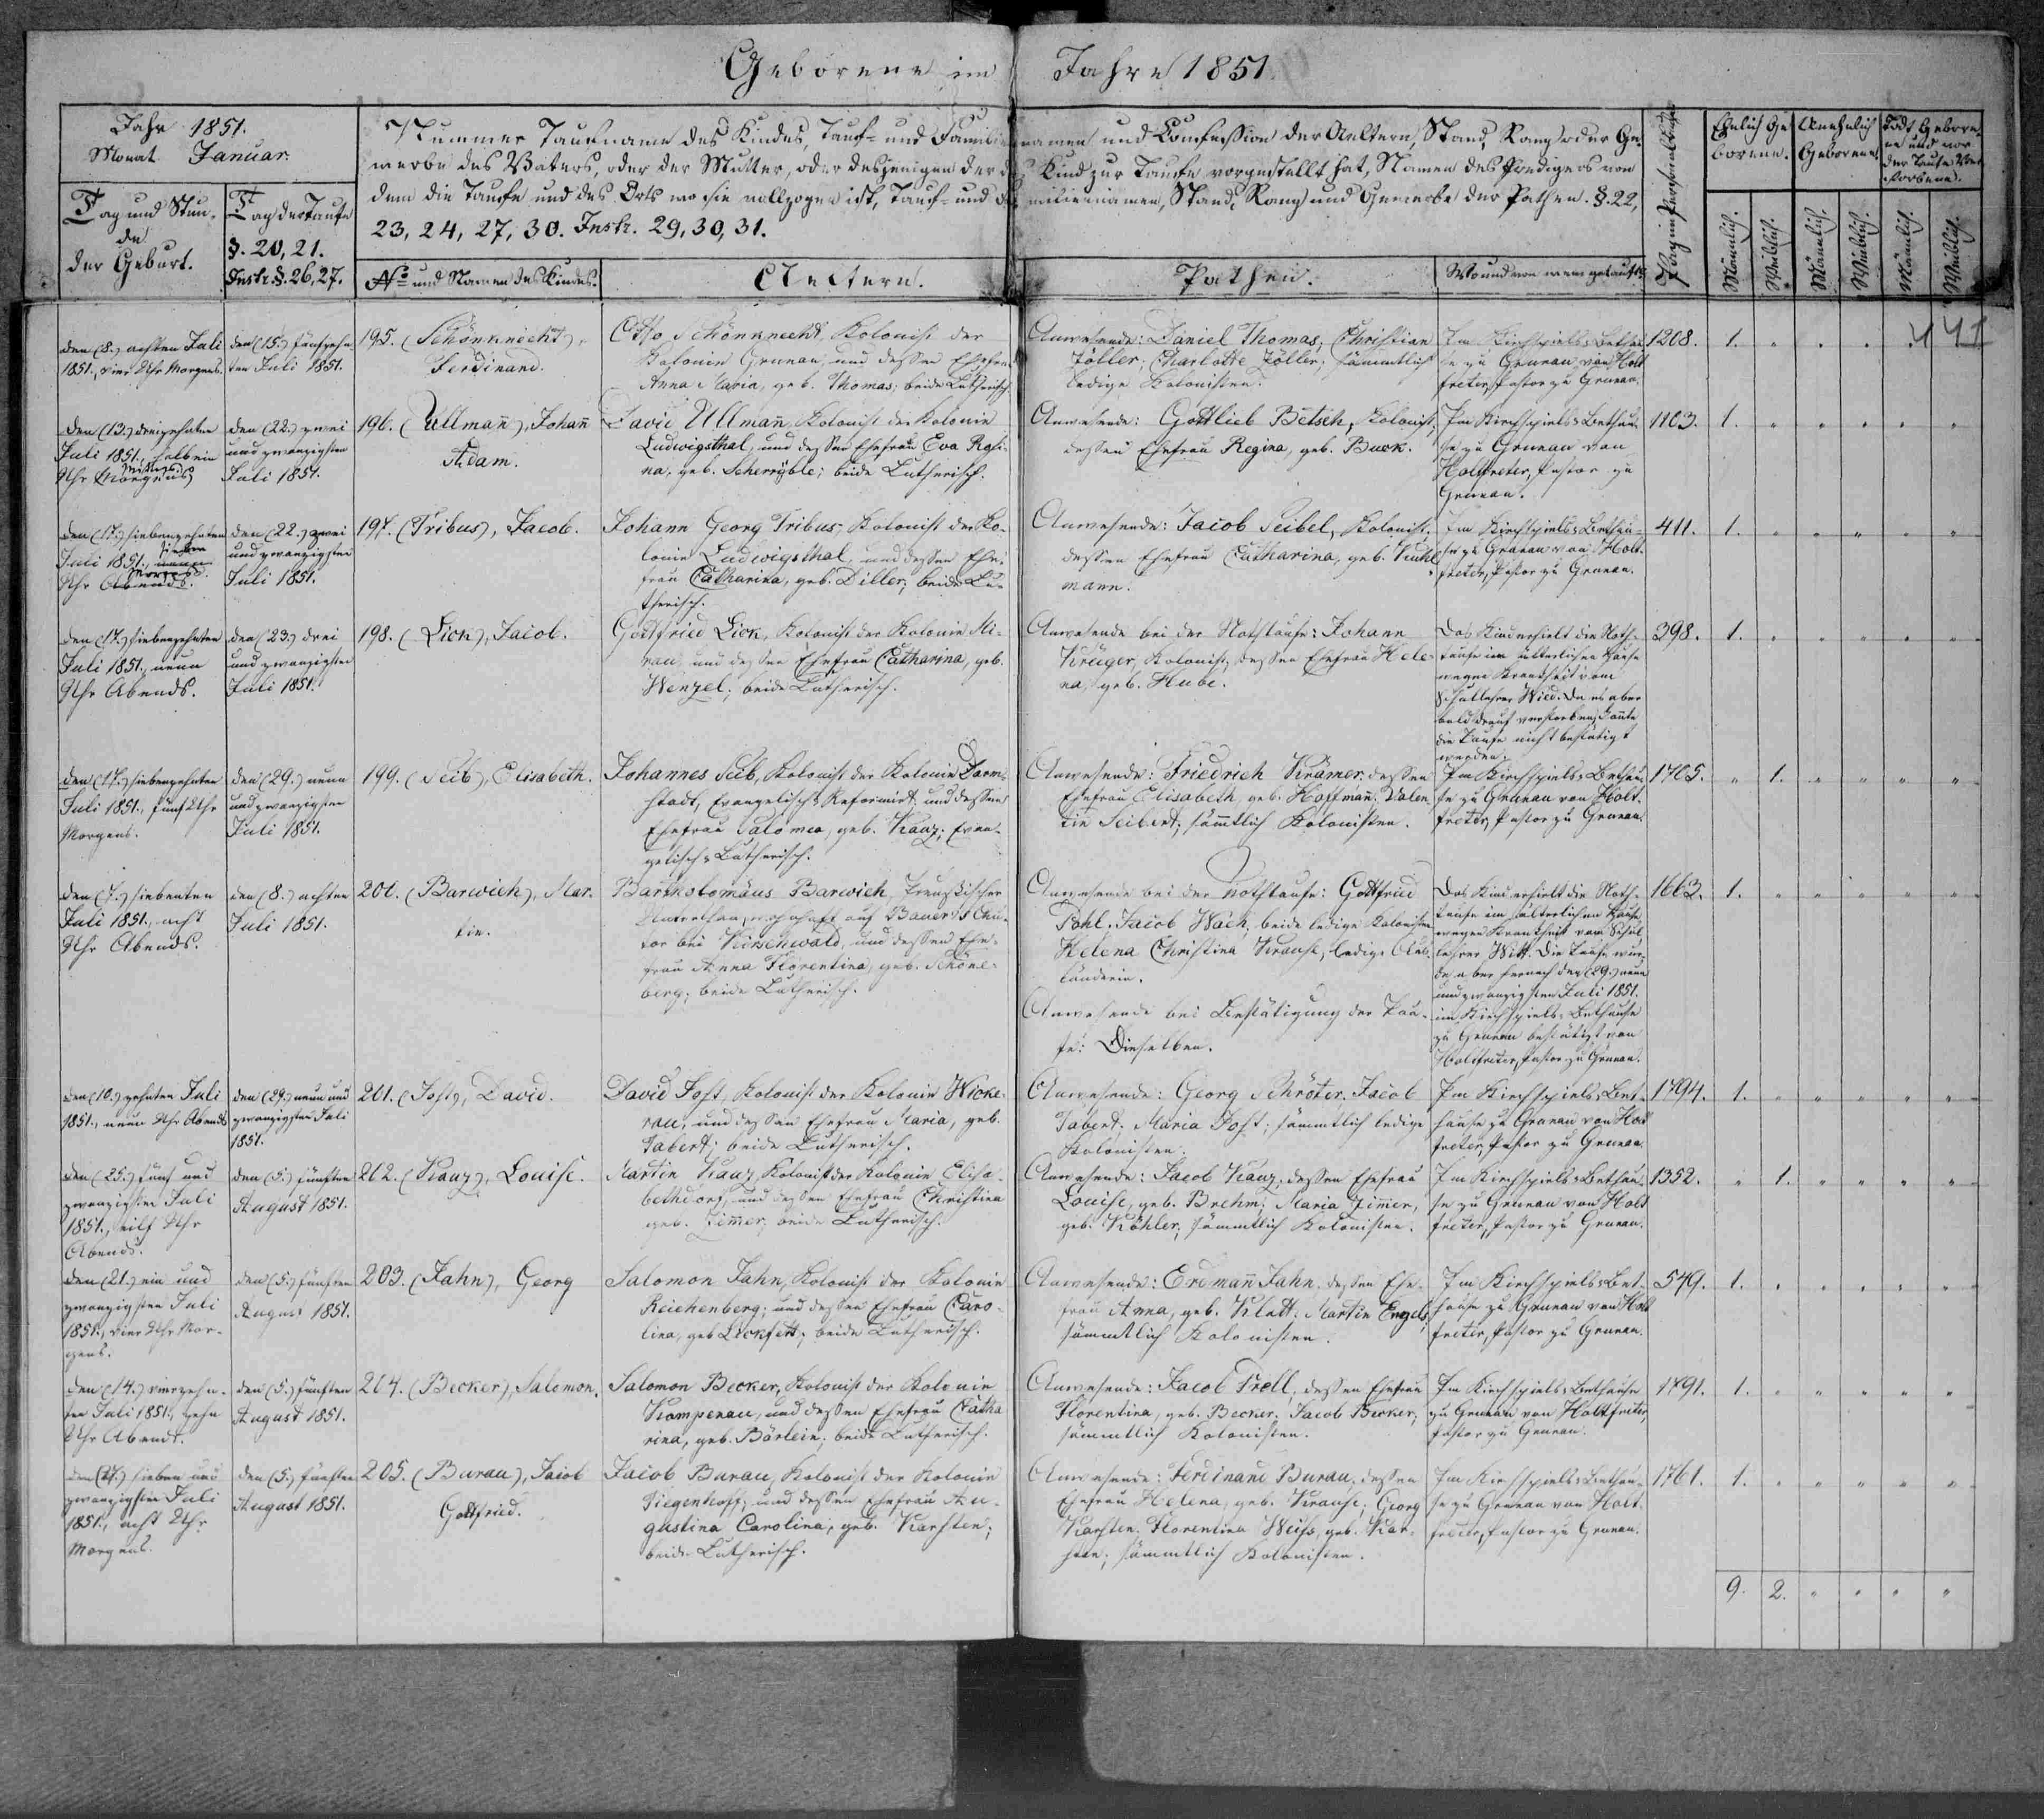 Geborene im Jahre 1851.
Jahr 1851.
Monat Januar.
Tag und Stun-
de
der Geburt.
Tag der Taufe
§. 20, 21.
Instr. §. 26, 27.
Nummer Taufname des Kindes, Tauf- und Familiennamen und Confession der Aeltern, Stand, Rang oder Ge-
werbe des Vaters, oder der Mutter, oder desjenigen der das Kind zur Taufe vorgestellt hat, Namen des Predigers von
dem die Taufe und des Orts wo sie vollzogen ist, Tauf- und Familiennamen, Stand, Rang und Gewerbe der Pathen. §. 22,
23, 24, 27, 30. Instr. 29, 30, 31.
No und Namen des Kindes.
Aeltern.
Pathen.
Wo und von wem getauft.
Ehelich Ge-
borene.
Unehelich
Geborene.
Todt Gebore-
ne und vor
der Taufe Ver-
storbene.
Männlich.
Weiblich.
Männlich.
Weiblich.
Männlich.
Weiblich.
den (8.) achten Juli
1851., vier Uhr Morgens.
den (15.) fünfzehn
ten Juli 1851.
195. (Schönknecht),
Ferdinand.
Otto Schönknecht, Kolonist der
Kolonie Grunau, und dessen Ehefrau
Anna Maria, geb. Thomas; beide Lutherisch.
Anwesende: Daniel Thomas; Christian
Zöller; Charlotte Zöller; sämmtlich
ledige Kolonisten.
Im Kirchspiels-Bethau-
se zu Grunau von Holt
freter, Pastor zu Grunau.
1208.
1.
den (13.) dreizehnten
Juli 1851., halb ein
Uhr Morgens
Mittags
den (22.) zwei
und zwanzigsten
Juli 1851.
196. (Ullmañ), Johañ
Adam.
David Ullmañ, Kolonist der Kolonie
Ludwigsthal, und dessen Ehefrau Eva Rosi-
na, geb. Scherrüble; beide Lutherisch.
Anwesende: Gottlieb Betsch, Kolonist,
dessen Ehefrau Regina, geb. Buck.
Im Kirchspiels-Bethau-
se zu Grunau von
Holtfreter, Pastor zu
Grunau.
1103.
1.
den (17.) siebenzehnten
Juli 1851., neun
sieben
Uhr Abends.
Morgens.
den (22.) zwei
und zwanzigsten
Juli 1851.
197. (Tribus), Jacob.
Johann Georg Tribus, Kolonist der Ko-
lonie Ludwigsthal, und dessen Ehe-
frau Catharina, geb. Diller; beide Lu-
therisch.
Anwesende: Jacob Seibel, Kolonist;
dessen Ehefrau Catharina, geb. Kuhl
mann.
Im Kirchspiels-Bethau-
se zu Grunau von Holt-
freter, Pastor zu Grunau.
411.
1.
den (17.) siebenzehnten
Juli 1851, neun
Uhr Abends.
den (23.) drei
und zwanzigsten
Juli 1851.
198. (Lick), Jacob.
Gottfried Lick, Kolonist der Kolonie Mi-
rau, und dessen Ehefrau Catharina, geb.
Wenzel; beide Lutherisch.
Anwesende bei der Nothtaufe: Johann
Krüger, Kolonist, dessen Ehefrau Hele-
na, geb. Hube.
Das Kind erhielt die Noth-
taufe im älterlichen Hause
wegen Krankheit vom
Schullehrer Wied. Da es aber
bald drauf verstorben, konnte
die Taufe nicht bestätigt
werden.
398.
1.
den (17.) siebenzehnten
Juli 1851., fünf Uhr
Morgens.
den (29.) neun
und zwanzigsten
Juli 1851.
199. (Seib), Elisabeth.
Johannes Seib, Kolonist der Kolonie Darm-
stadt, Evangelisch-Reformirt, und dessen
Ehefrau Salomea, geb. Kauz; Evan-
gelisch-Lutherisch.
Anwesende: Friedrich Krämer, dessen
Ehefrau Elisabeth, geb. Hoffmañ. Valen
tin Seibert; sämtlich Kolonisten.
Im Kirchspiels-Bethau-
se zu Grunau von Holt-
freter, Pastor zu Grunau.
1705.
1.
den (7.) siebenten
Juli 1851., acht
Uhr Abends.
den (8.) achten
Juli 1851.
200. (Barwich), Mar-
tin.
Bartholomäus Barwich, Preussischer
Unterthan, wohnhaft auf Bauer's Chu-
tor bei Kirschwald, und dessen Ehe-
frau Anna Florentina, geb. Schöne-
berg; beide Lutherisch.
Anwesende bei der Nothtaufe: Gottfried
Pohl, Jacob Wach, beide ledige Kolonisten
Helena Christina Krause, ledige Aus-
länderin.
Anwesende bei Bestätigung der Tau-
fe: Dieselben.
Das Kind erhielt die Noth-
taufe im älterlichen Hause
wegen Krankheit vom Schul
lehrer Witt. Die Taufe wur-
de aber hernach den (29.) neun
und zwanzigsten Juli 1851.
im Kirchspiels-Bethause
zu Grunau bestätigt von
Holtfreter, Pastor zu Grunau.
1663.
1.
den (10.) zehnten Juli
1851., neun Uhr Abends
den (29.) neun und
zwanzigsten Juli
1851.
201. (Jost), David.
David Jost, Kolonist der Kolonie Wicke-
rau, und dessen Ehefrau Maria, geb.
Tabert; beide Lutherisch.
Anwesende: Georg Schröter, Jacob
Tabert. Maria Jost; sämmtlich ledige
Kolonisten.
Im Kirchspiels-Bet-
hause zu Grunau von Holt
freter, Pastor zu Grunau.
1794.
1.
den (25.) fünf und
zwanzigsten Juli
1851., eilf Uhr
Abends.
den (5.) fünften
August 1851.
202. (Kauz), Louise.
Martin Kauz, Kolonist der Kolonie Elisa-
bethdorf, und dessen Ehefrau Christina
geb. Zim̃er, beide Lutherisch.
Anwesende: Jacob Kauz, dessen Ehefrau
Louise, geb. Brehm; Maria Zimer,
geb. Köhler; sämmtlich Kolonisten.
Im Kirchspiels-Bethau-
se zu Grunau von Holt
freter, Pastor zu Grunau.
1352.
1.
den (21.) ein und
zwanzigsten Juli
1851., vier Uhr Mor-
gens.
den (5.) fünften
August 1851.
203. (Jahn), Georg
Salomon Jahn, Kolonist der Kolonie
Reichenberg; und dessen Ehefrau Caro-
lina, geb. Lickfett; beide Lutherisch.
Anwesende: Erdmañ Jahn, dessen Ehe-
frau Anna, geb. Klatt. Martin Engels;
sämmtlich Kolonisten.
Im Kirchspiels-Bet-
hause zu Grunau von Holt
freter, Pastor zu Grunau.
549.
1.
den (14.) vierzehn-
ten Juli 1851., zehn
Uhr Abends.
den (5.) fünften
August 1851.
204. (Becker), Salomon.
Salomon Becker, Kolonist der Kolonie
Kampenau, und dessen Ehefrau Catha
rina, geb. Bärlein; beide Lutherisch.
Anwesende: Jacob Prell, dessen Ehefrau
Florentina, geb. Becker. Jacob Becker;
sämmtlich Kolonisten.
Im Kirchspiels-Bethause
zu Grunau von Holtfreter,
Pastor zu Grunau.
1791.
1.
den (27.) sieben und
zwanzigsten Juli
1851., acht Uhr
Morgens.
den (5.) fünften
August 1851.
205. (Burau), Jacob
Gottfried.
Jacob Burau, Kolonist der Kolonie
Tiegenhoff; und dessen Ehefrau Au-
gustina Carolina, geb. Karsten;
beide Lutherisch.
Anwesende: Ferdinand Burau, dessen
Ehefrau Helena, geb. Krause; Georg
Karsten. Florentina Weiss, geb. Kar-
sten; sämmtlich Kolonisten.
Im Kirchspiels-Bethau-
se zu Grunau von Holt-
freter, Pastor zu Grunau.
1761.
1.
9. 2.